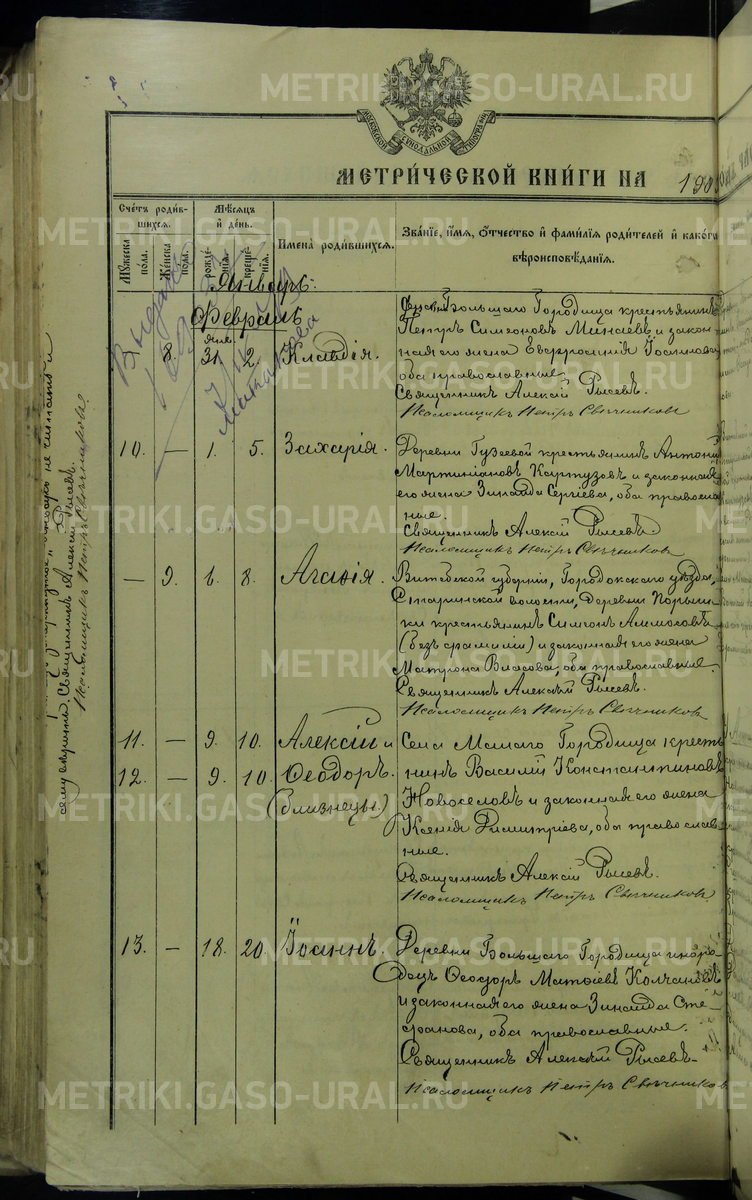 METRIKI.GASO-URAL.RU
МЕТРИ́ЧЕСКОЙ КНИ́ГИ НА 190
Сче́тъ роди́вшихся.
Му́жеска по́ла.
Же́нска по́ла.
Мѣ́сяцъ и де́нь.
рожде́нїя.
креще́нїя.
Имена̀ роди́вшихся.
Зва́нїе, и́мя, о́тчество и фами́лїя роди́телей и како́го вѣроисповѣ́данїя.
Январь
Февраль
янв.
8. 31. 2. Клавдія.
Большаго Городища крестьянинъ
Петръ Симеоновъ Минаевъ и закон-
ная его жена Евфросинія Іоаннова
оба православные
Священникъ Алексій Рысевъ.
Псаломщикъ Петръ Свѣчниковъ
10. — 1. 5. Захарія.
Деревни Гузеевой крестьянинъ Антоній
Мартиніановъ Картузовъ и законная
его жена Зинаида Сергіева, оба правосла-
вные.
Священникъ Алексій Рысевъ
Псаломщикъ Петръ Свѣчниковъ
— 9. 6. 8. Агафія.
Витебской губерніи, Городокскаго уѣзда,
Старинской волости, деревни
крестьянинъ Симеонъ
(безъ фамиліи) и законная его жена
Матрона Власова, оба православные.
Священникъ Алексѣй Рысевъ.
Псаломщикъ Петръ Свѣчниковъ
11. — 9. 10. Алексій и
12. — 9. 10. Ѳеодоръ.
(близнецы)
Села Малаго Городища кресть
нинъ Василій Константиновъ
Новоселовъ и законная его жена
Ксенія Димитріева, оба православ-
ные.
Священникъ Алексій Рысевъ.
Псаломщикъ Петръ Свѣчниковъ
13. — 18. 20. Іоаннъ.
Деревни Большаго Городища инор
децъ Ѳеодоръ Матѳіевъ Колчановъ
и законная его жена Зинаида Сте-
фанова, оба православные.
Священникъ Алексѣй Рысевъ.
Псаломщикъ Петръ Свѣчников
не читать
сему вѣрить. Священникъ Алексій Рысевъ.
Псаломщикъ Петръ Свѣчниковъ